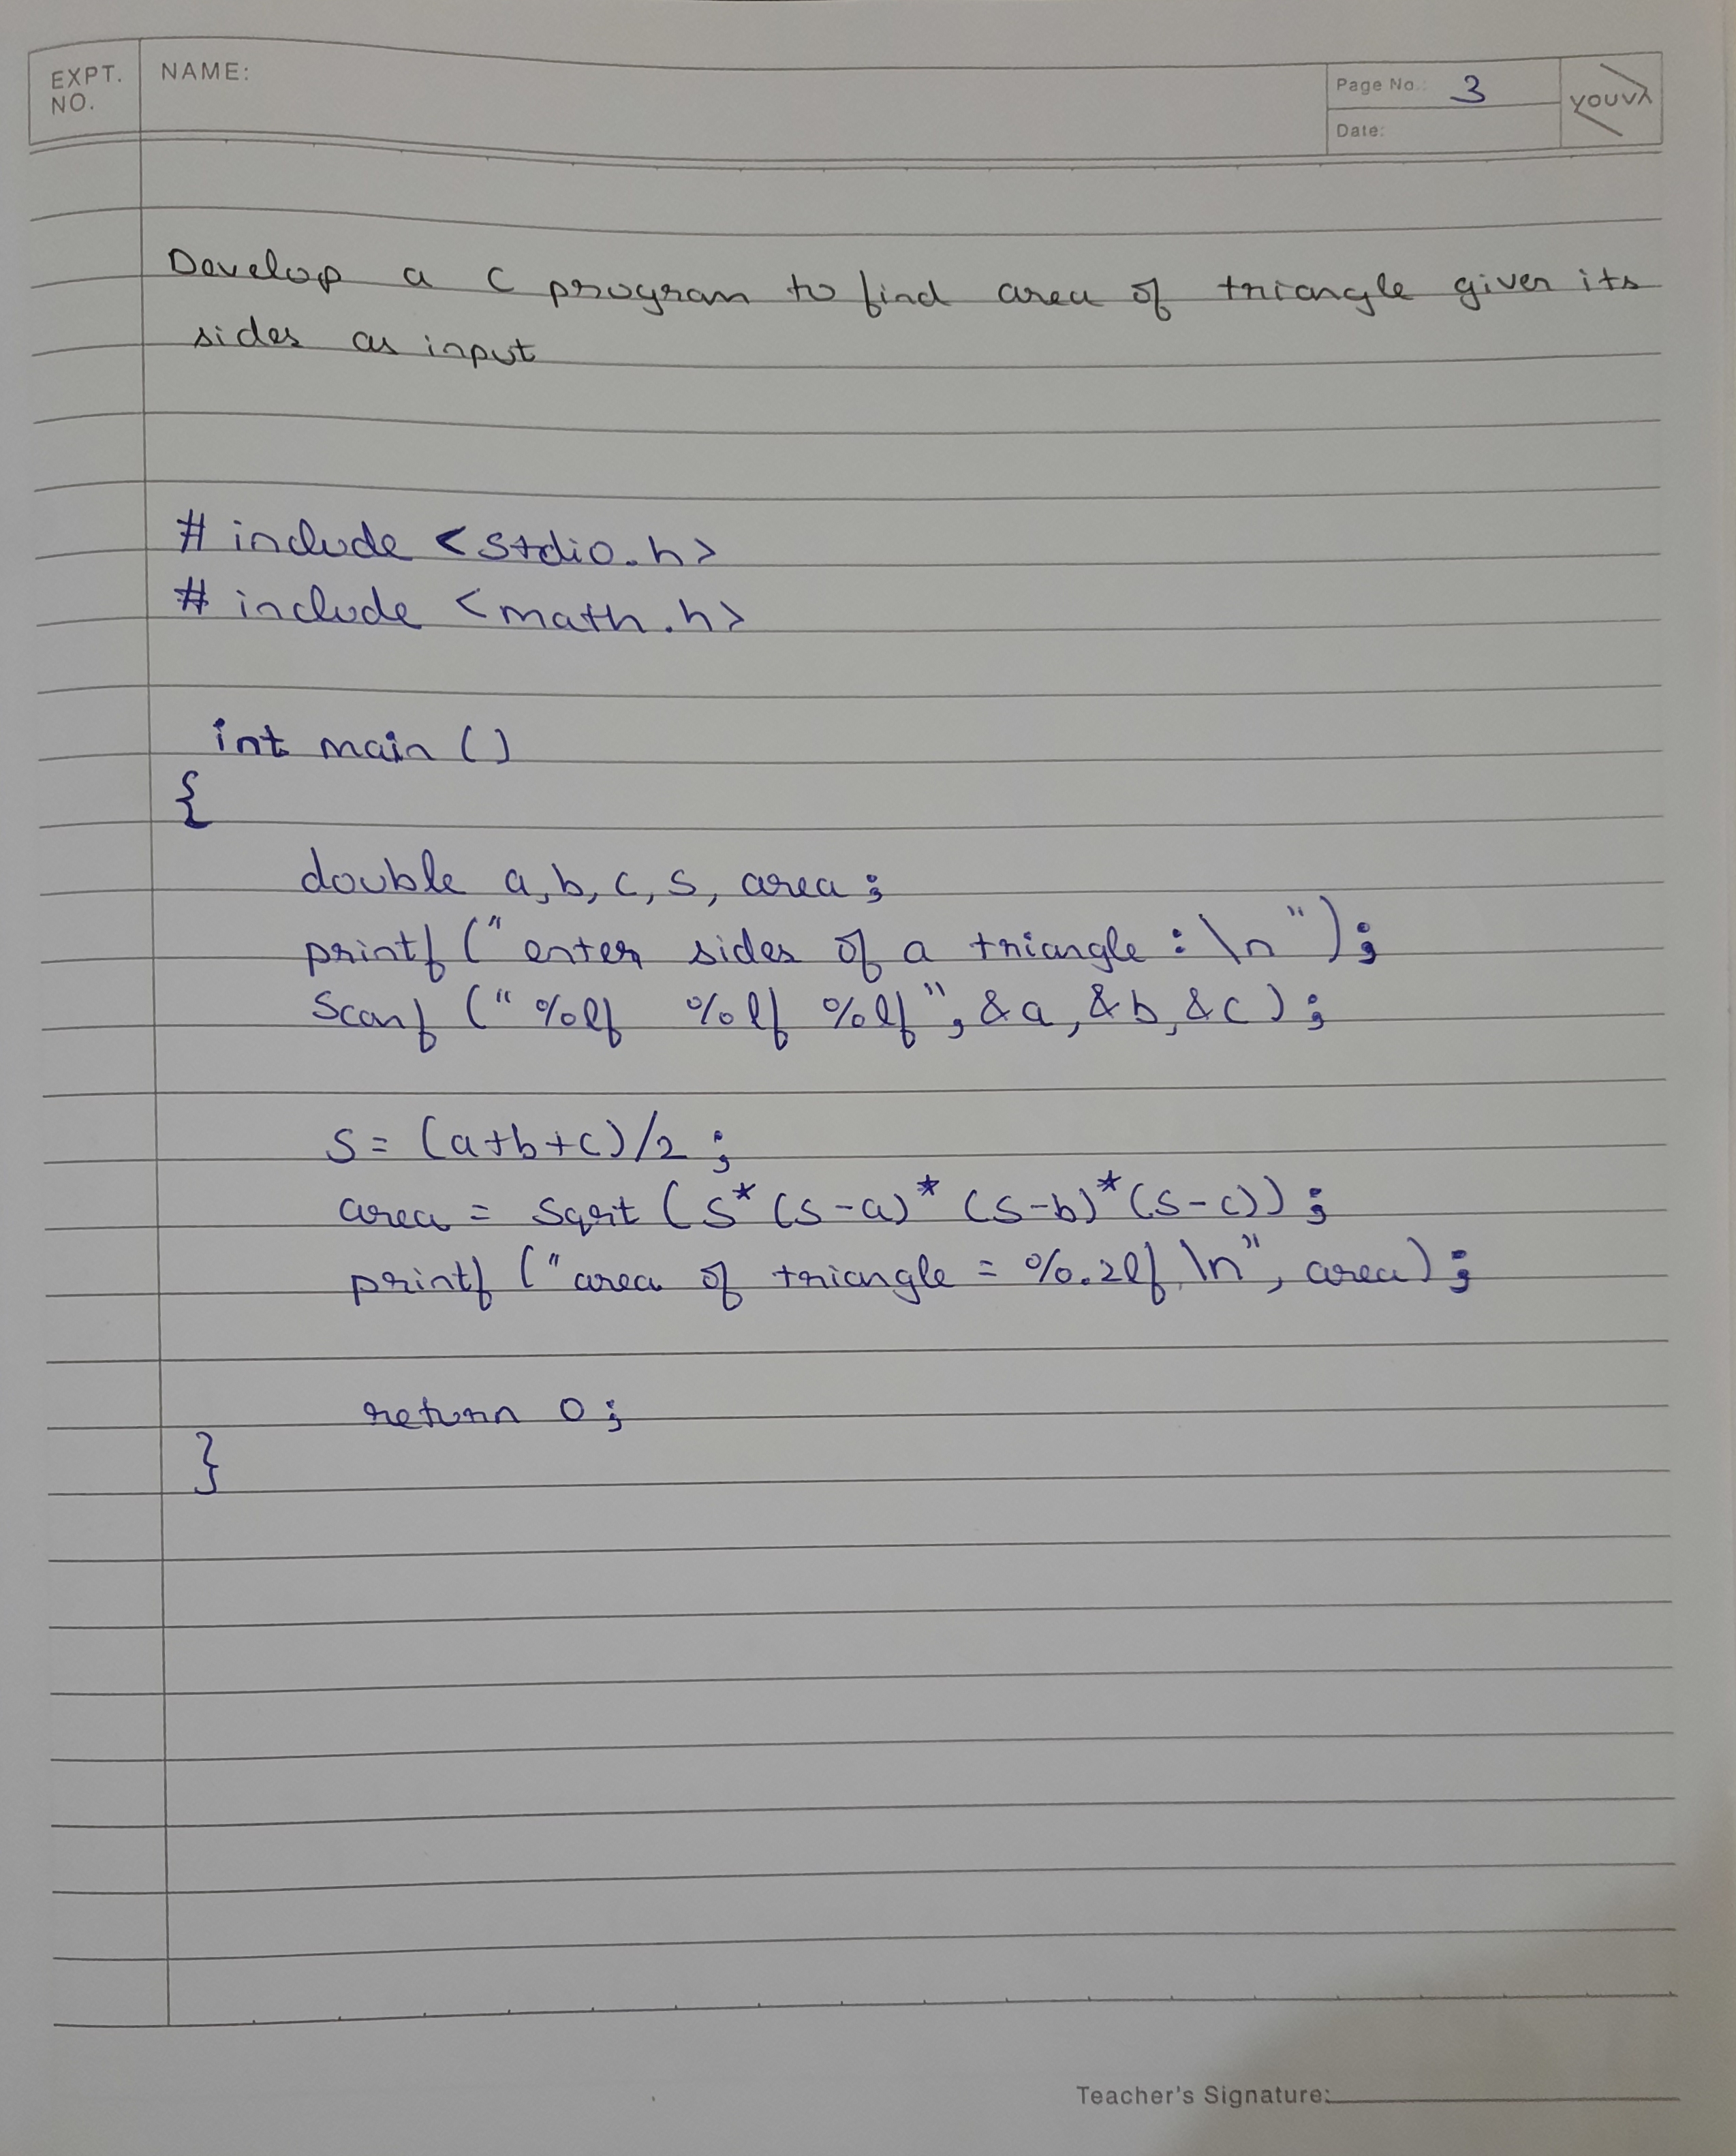 EXPT. NO.
NAME:
Page No.: 3
Date:
YOUVA
Develop a C program to find area of triangle given its
sides as input
# include <stdio.h>
# include <math.h>
int main ()
{
double a, b, c, s, area ;
printf (" enter sides of a triangle : \n ") ;
Scanf (" %lf %lf %lf ", &a, &b, &c ) ;
S = (a+b+c)/2 ;
area = sqrt ( s* (s-a)* (s-b)* (s-c)) ;
printf (" area of triangle = %.2lf \n", area) ;
return 0 ;
}
Teacher's Signature: